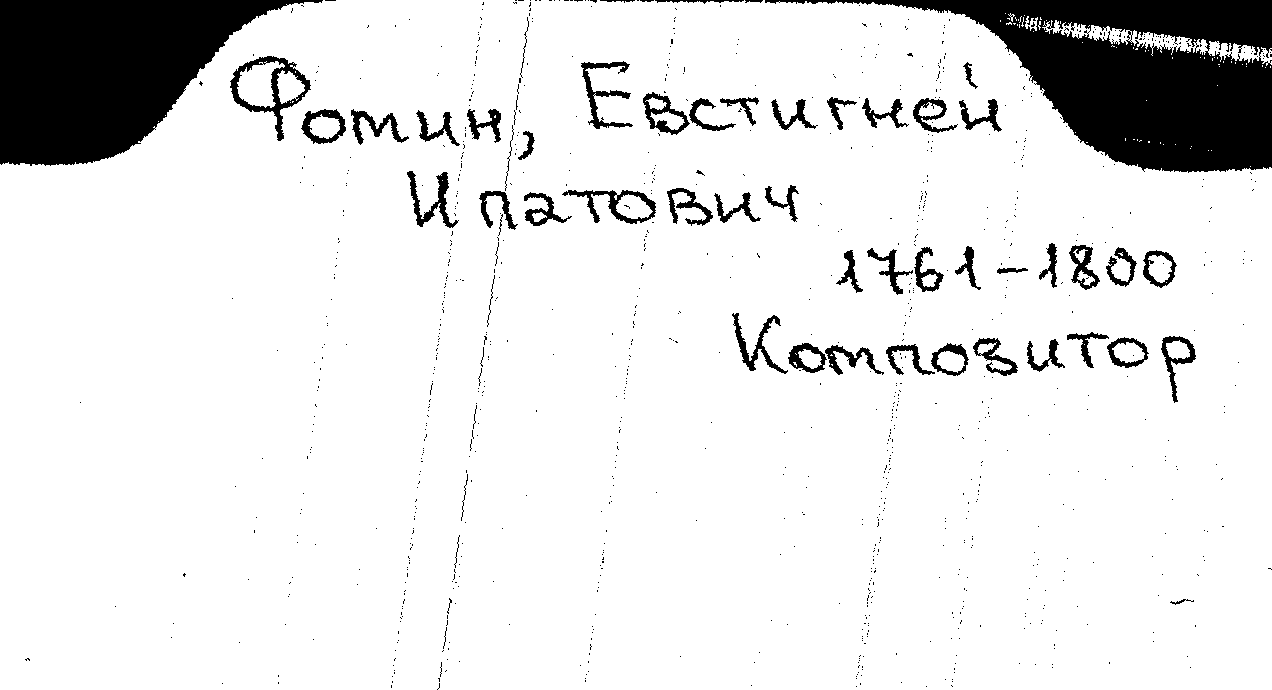 Фомин, Евстигней
Ипатович
1761-1800
Композитор